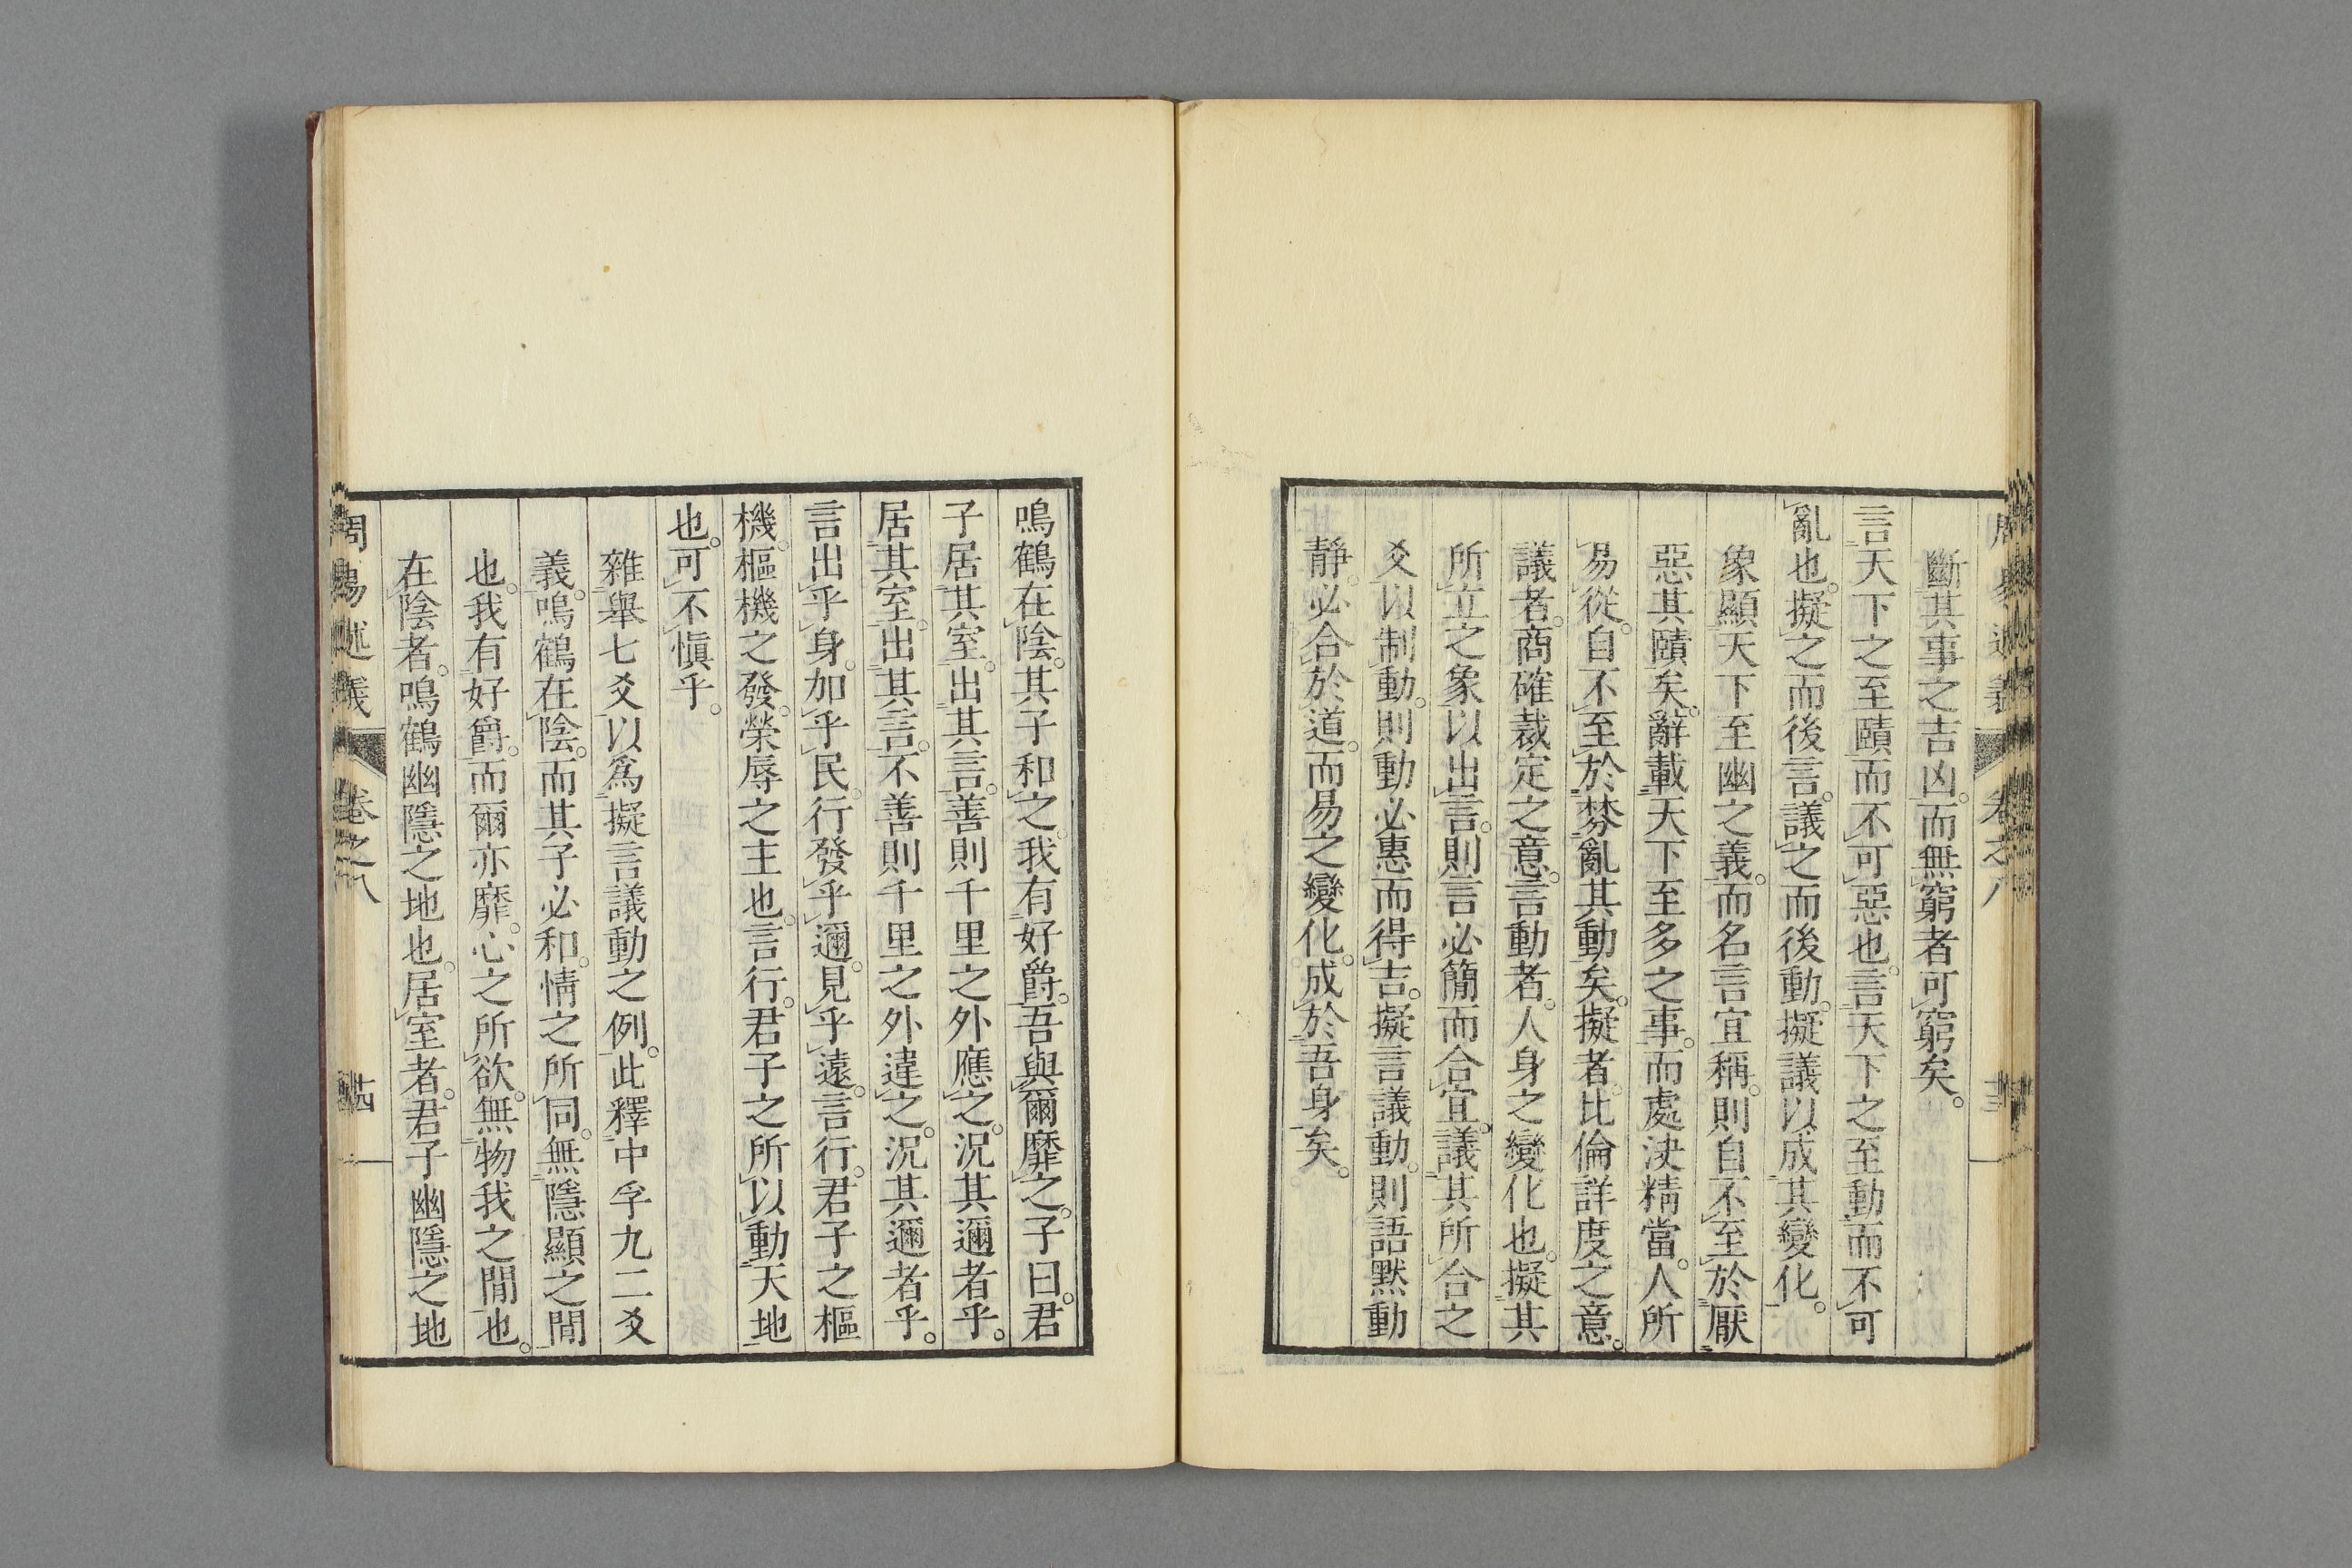 周易述義　卷之八　十三
斷其事之吉凶。而無窮者可窮矣。
言天下之至賾而不可惡也。言天下之至動而不可
亂也。擬之而後言。議之而後動。擬議以成其變化。
象顯天下至幽之義。而名言宜稱。則自不至於厭
惡其賾矣。辭載天下至多之事。而處決精當。人所
易從。自不至於棼亂其動矣。擬者。比倫詳度之意。
議者。商確裁定之意。言動者。人身之變化也。擬其
所立之象以出言。則言必簡而合宜。議其所合之
爻以制動。則動必惠而得吉。擬言議動。則語默動
靜。必合於道。而易之變化。成於吾身矣。
鳴鶴在陰。其子和之。我有好爵。吾與爾靡之。子曰。君
子居其室。出其言。善則千里之外應之。況其邇者乎。
居其室。出其言。不善則千里之外違之。況其邇者乎。
言出乎身。加乎民。行發乎邇。見乎遠。言行。君子之樞
機。樞機之發。榮辱之主也。言行。君子之所以動天地
也。可不愼乎。
雜舉七爻。以爲擬言議動之例。此釋中孚九二爻
義。鳴鶴在陰。而其子必和。情之所同。無隱顯之閒
也。我有好爵。而爾亦靡。心之所欲。無物我之閒也。
在陰者。鳴鶴幽隱之地也。居室者。君子幽隱之地
周易述義　卷之八　十四